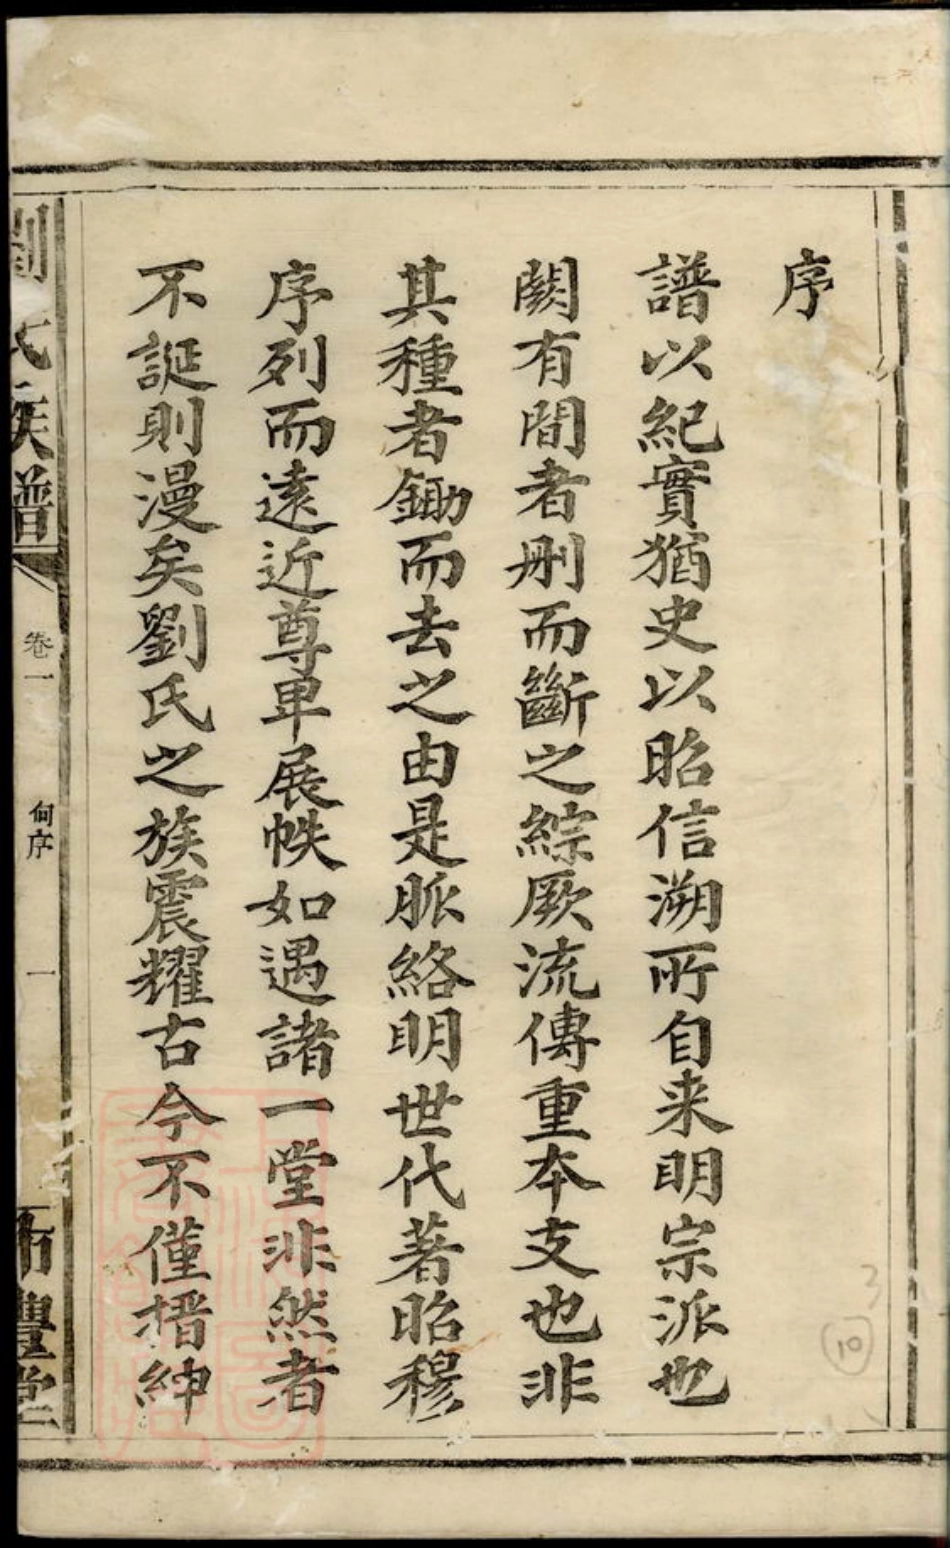 序
譜以紀實猶史以昭信溯所自来明宗派也
闕有間者刪而斷之綜厥流傳重本支也非
其種者鋤而去之由是脈絡明世代著昭穆
序列而遠近尊卑展帙如遇諸一堂非然者
不誕則漫矣劉氏之族震耀古今不僅搢紳
劉氏族譜
卷一
何序
一
豐堂
10